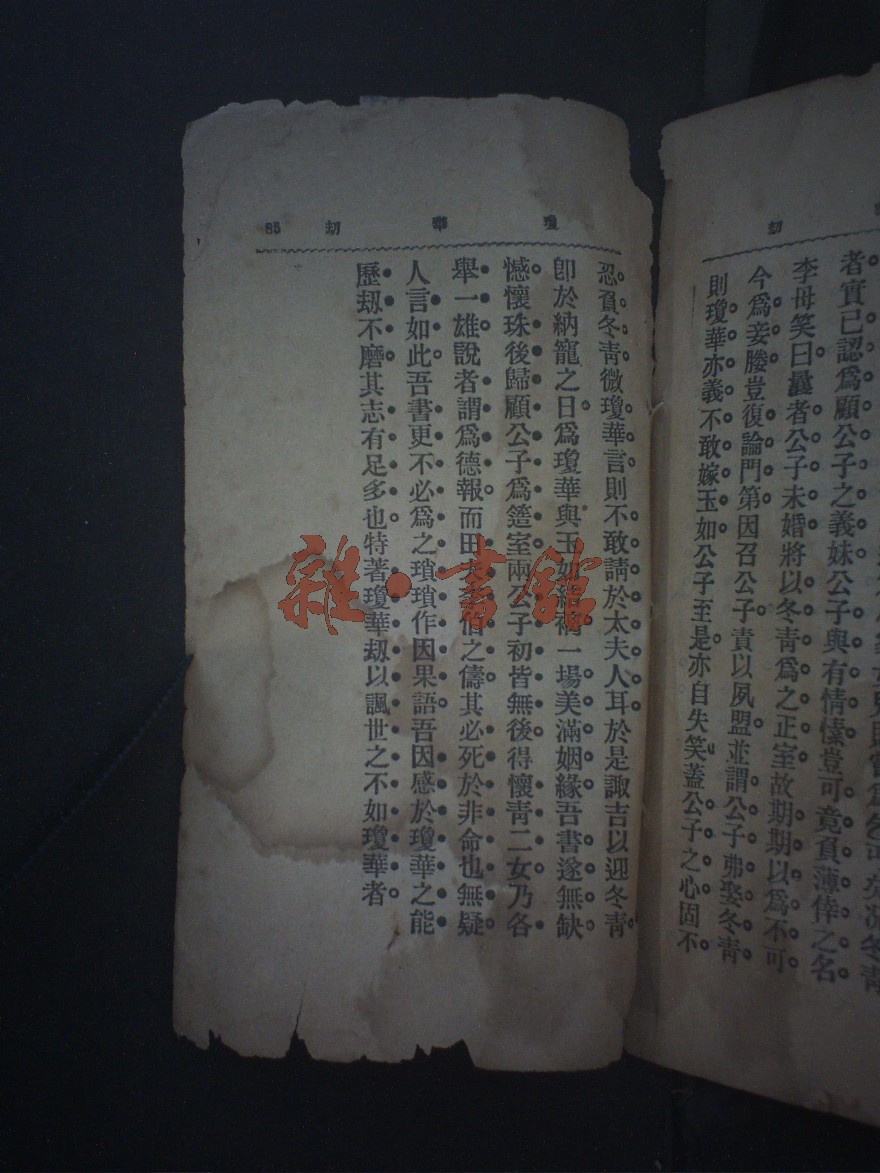 劫
者實已認爲顧公子之義妹公子與有情愫豈可竟負薄倖之名
李母笑曰曩者公子未婚將以冬青爲之正室故期期以爲不可
今爲妾媵豈復論門第因召公子責以夙盟並謂公子弗娶冬青
則瓊華亦義不敢嫁玉如公子至是亦自失笑蓋公子之心固不
瓊華劫 85
忍負冬青微瓊華言則不敢請於太夫人耳於是諏吉以迎冬青
卽於納寵之日爲瓊華與玉如結褵一場美滿姻緣吾書遂無缺
憾懷珠後歸顧公子爲簉室兩公子初皆無後得懷青二女乃各
舉一雄說者謂爲德報而田
之儔其必死於非命也無疑
人言如此吾書更不必爲之瑣瑣作因果語吾因感於瓊華之能
歷劫不磨其志有足多也特著瓊華劫以諷世之不如瓊華者
雜·書館